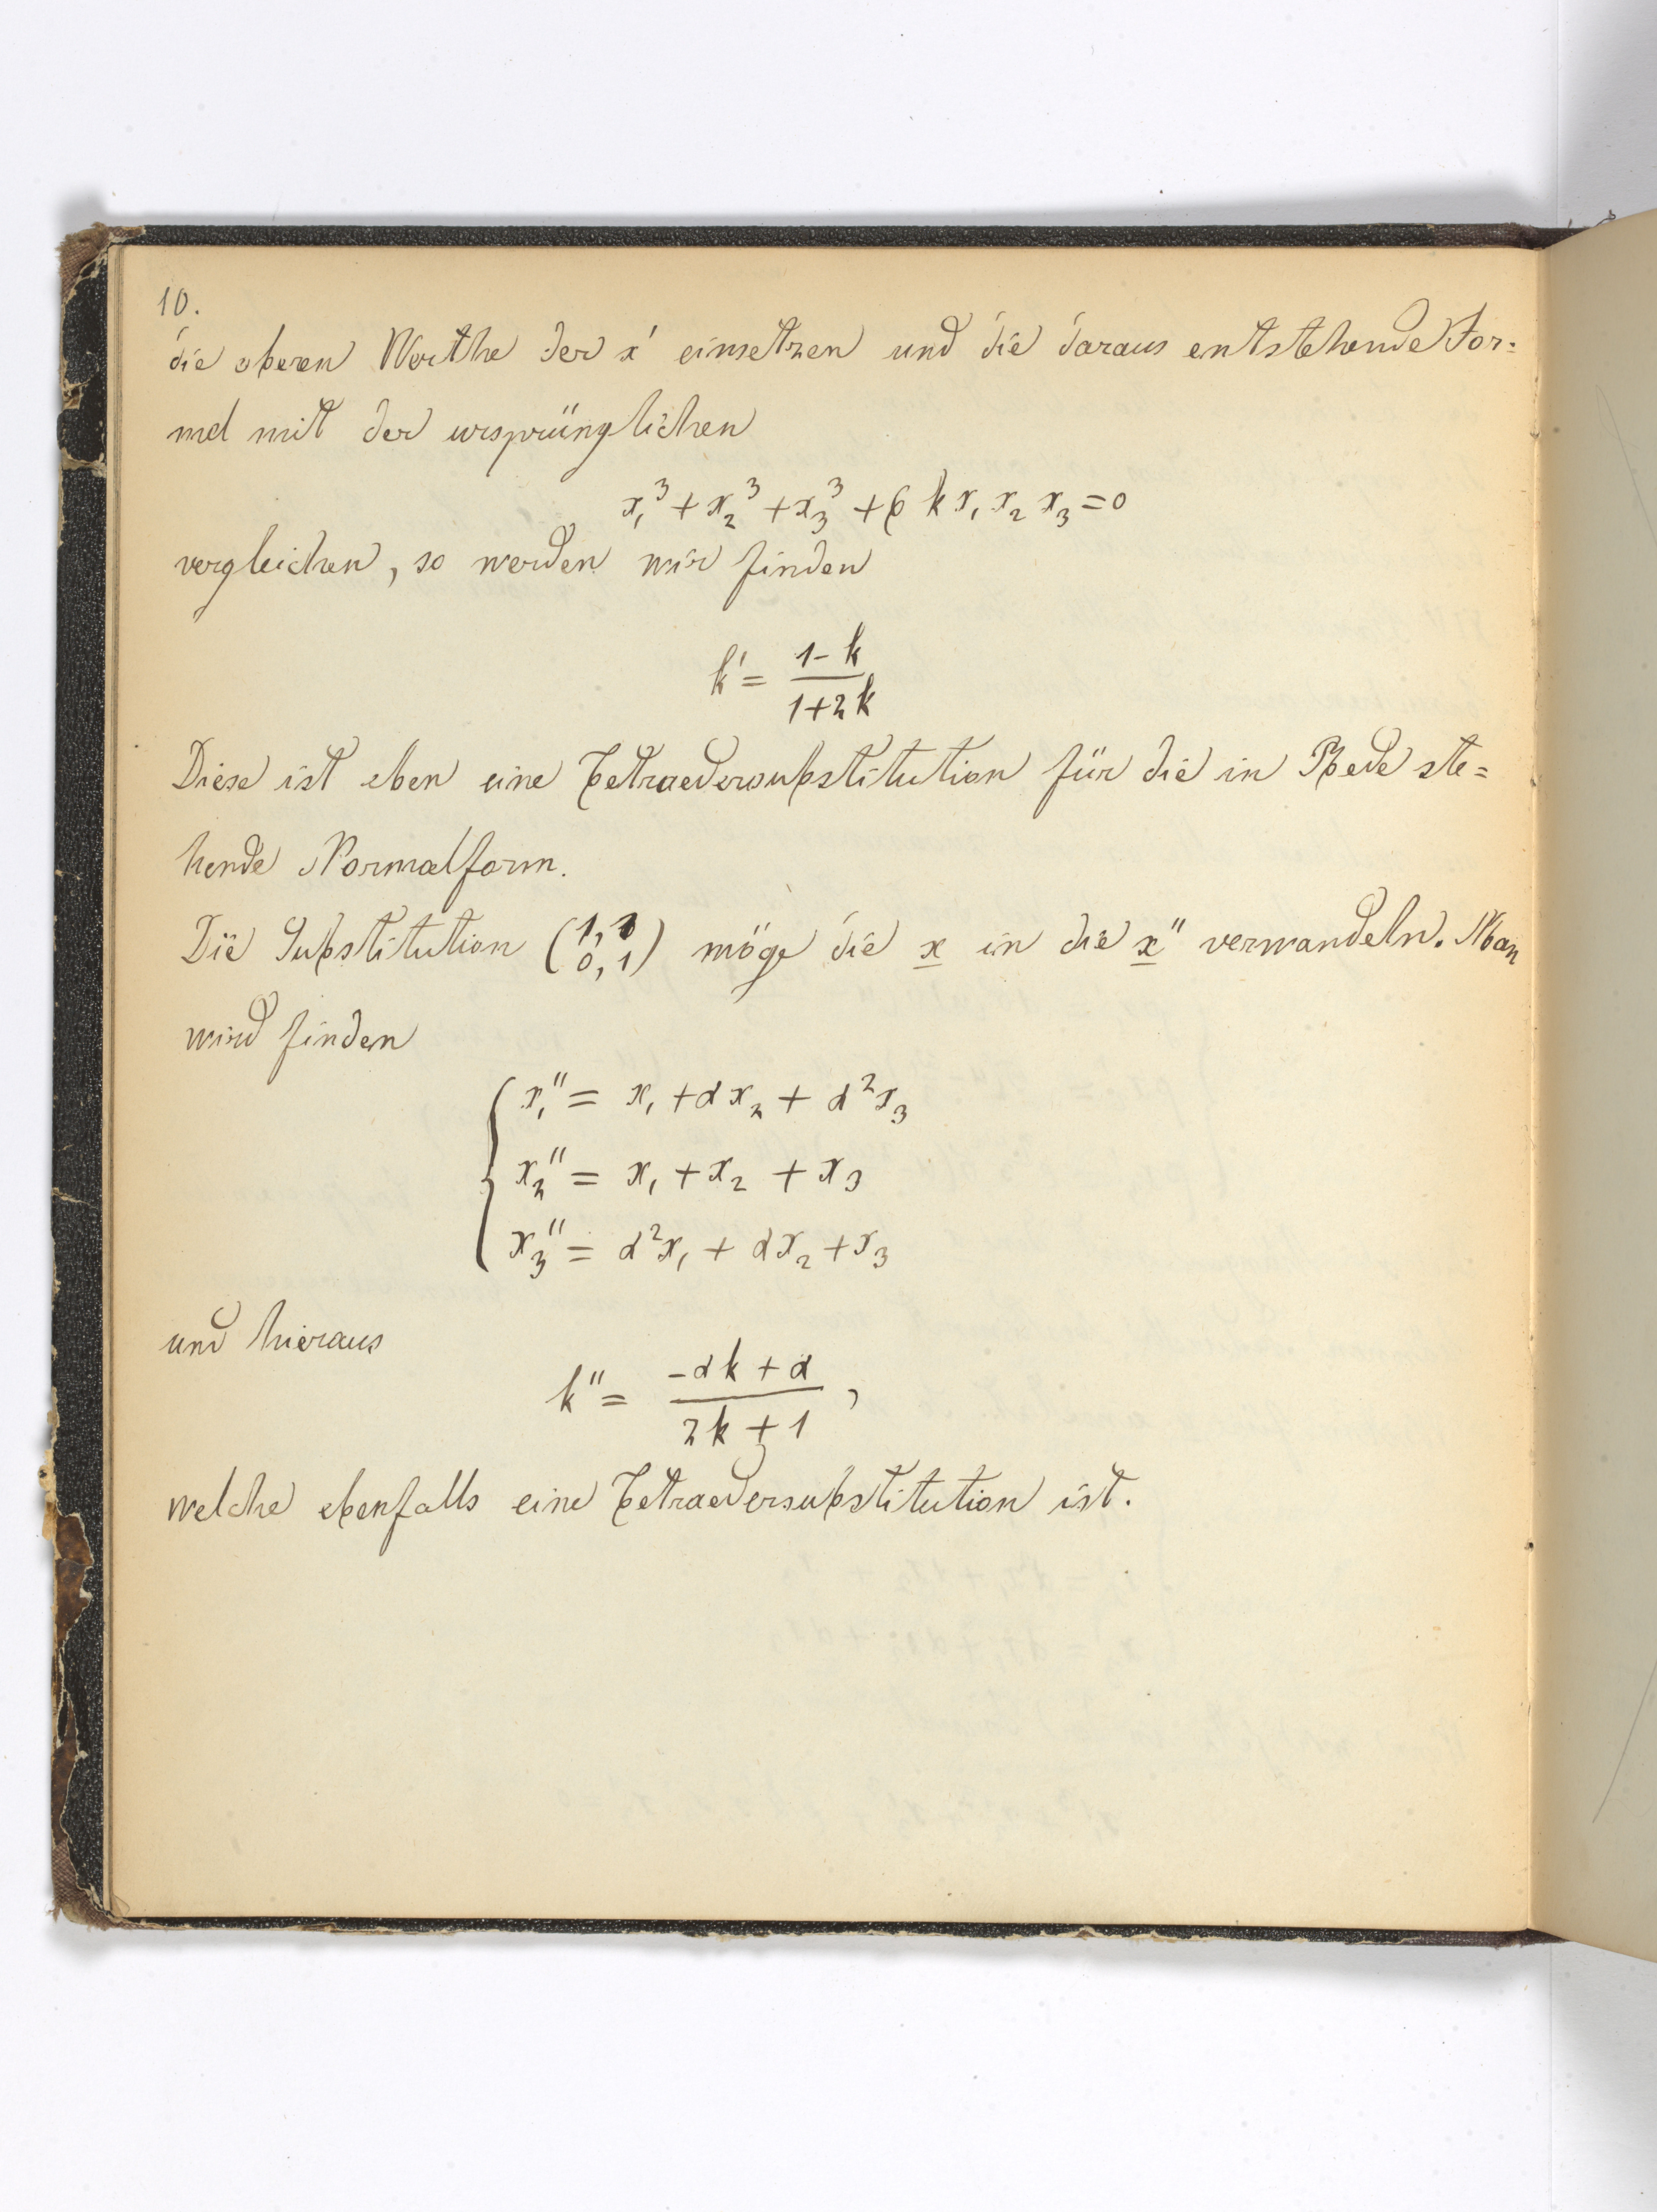 10.
die oberen Werthe der x' einsetzen und die daraus entstehende For=
mel mit der ursprünglichen
x₁³ + x₂³ + x₃³ + 6 k x₁ x₂ x₃ = 0
vergleichen, so werden wir finden
k' = (1 - k)/(1 + 2k)
Diese ist eben eine Tetraedersubstitution für die in Rede ste=
hende Normalform.
Die Substitution (1, 1 / 0, 1) möge die x in die x'' verwandeln. Man
wird finden
x₁'' = x₁ + αx₂ + α²x₃
x₂'' = x₁ + x₂ + x₃
x₃'' = α²x₁ + αx₂ + x₃
und hieraus
k'' = (-αk + α)/(2k + 1),
welche ebenfalls eine Tetraedersubstitution ist.